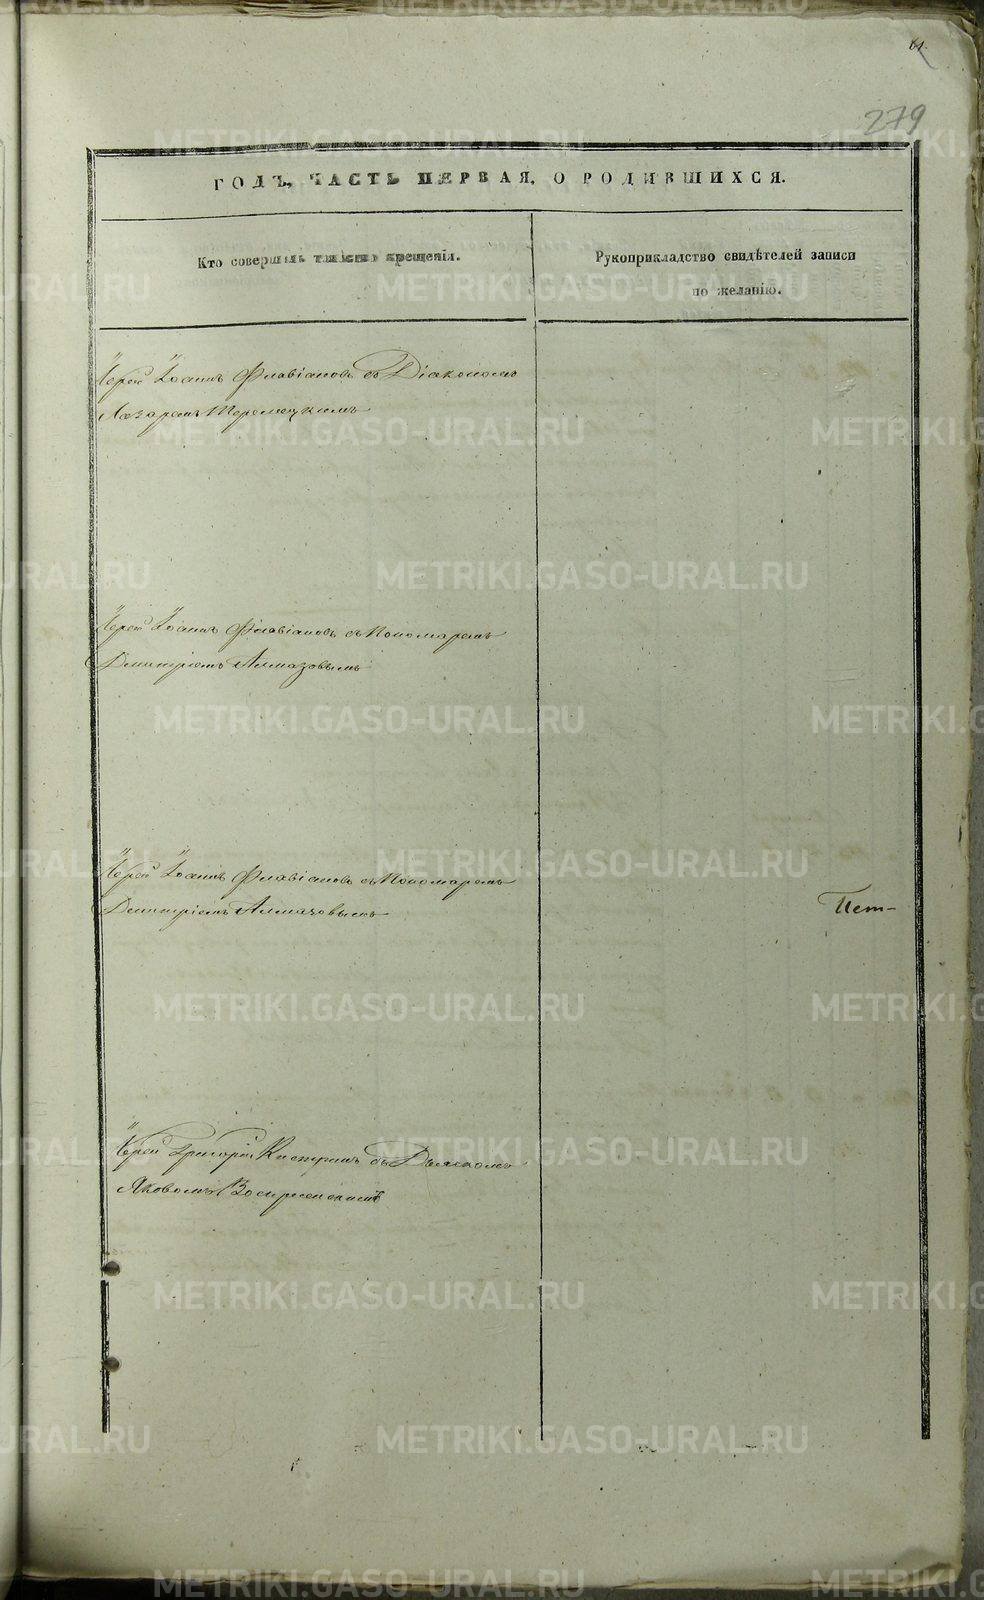 61.
279
ГОДЪ, ЧАСТЬ ПЕРВАЯ, О РОДИВШИХСЯ.
Кто совершалъ таинство крещенія.
Рукоприкладство свидѣтелей записи
по желанію.
Іерей Іоаннъ Флавіановъ съ Діакономъ
Лазаремъ
Іерей Іоаннъ Флавіановъ съ Пономаремъ
Димитріемъ Алмазовымъ
Іерей Іоаннъ Флавіановъ съ Пономаремъ
Димитріемъ Алмазовымъ
Пет-
Іерей Григорій съ
Яковомъ Воскресенскимъ
METRIKI.GASO-URAL.RU